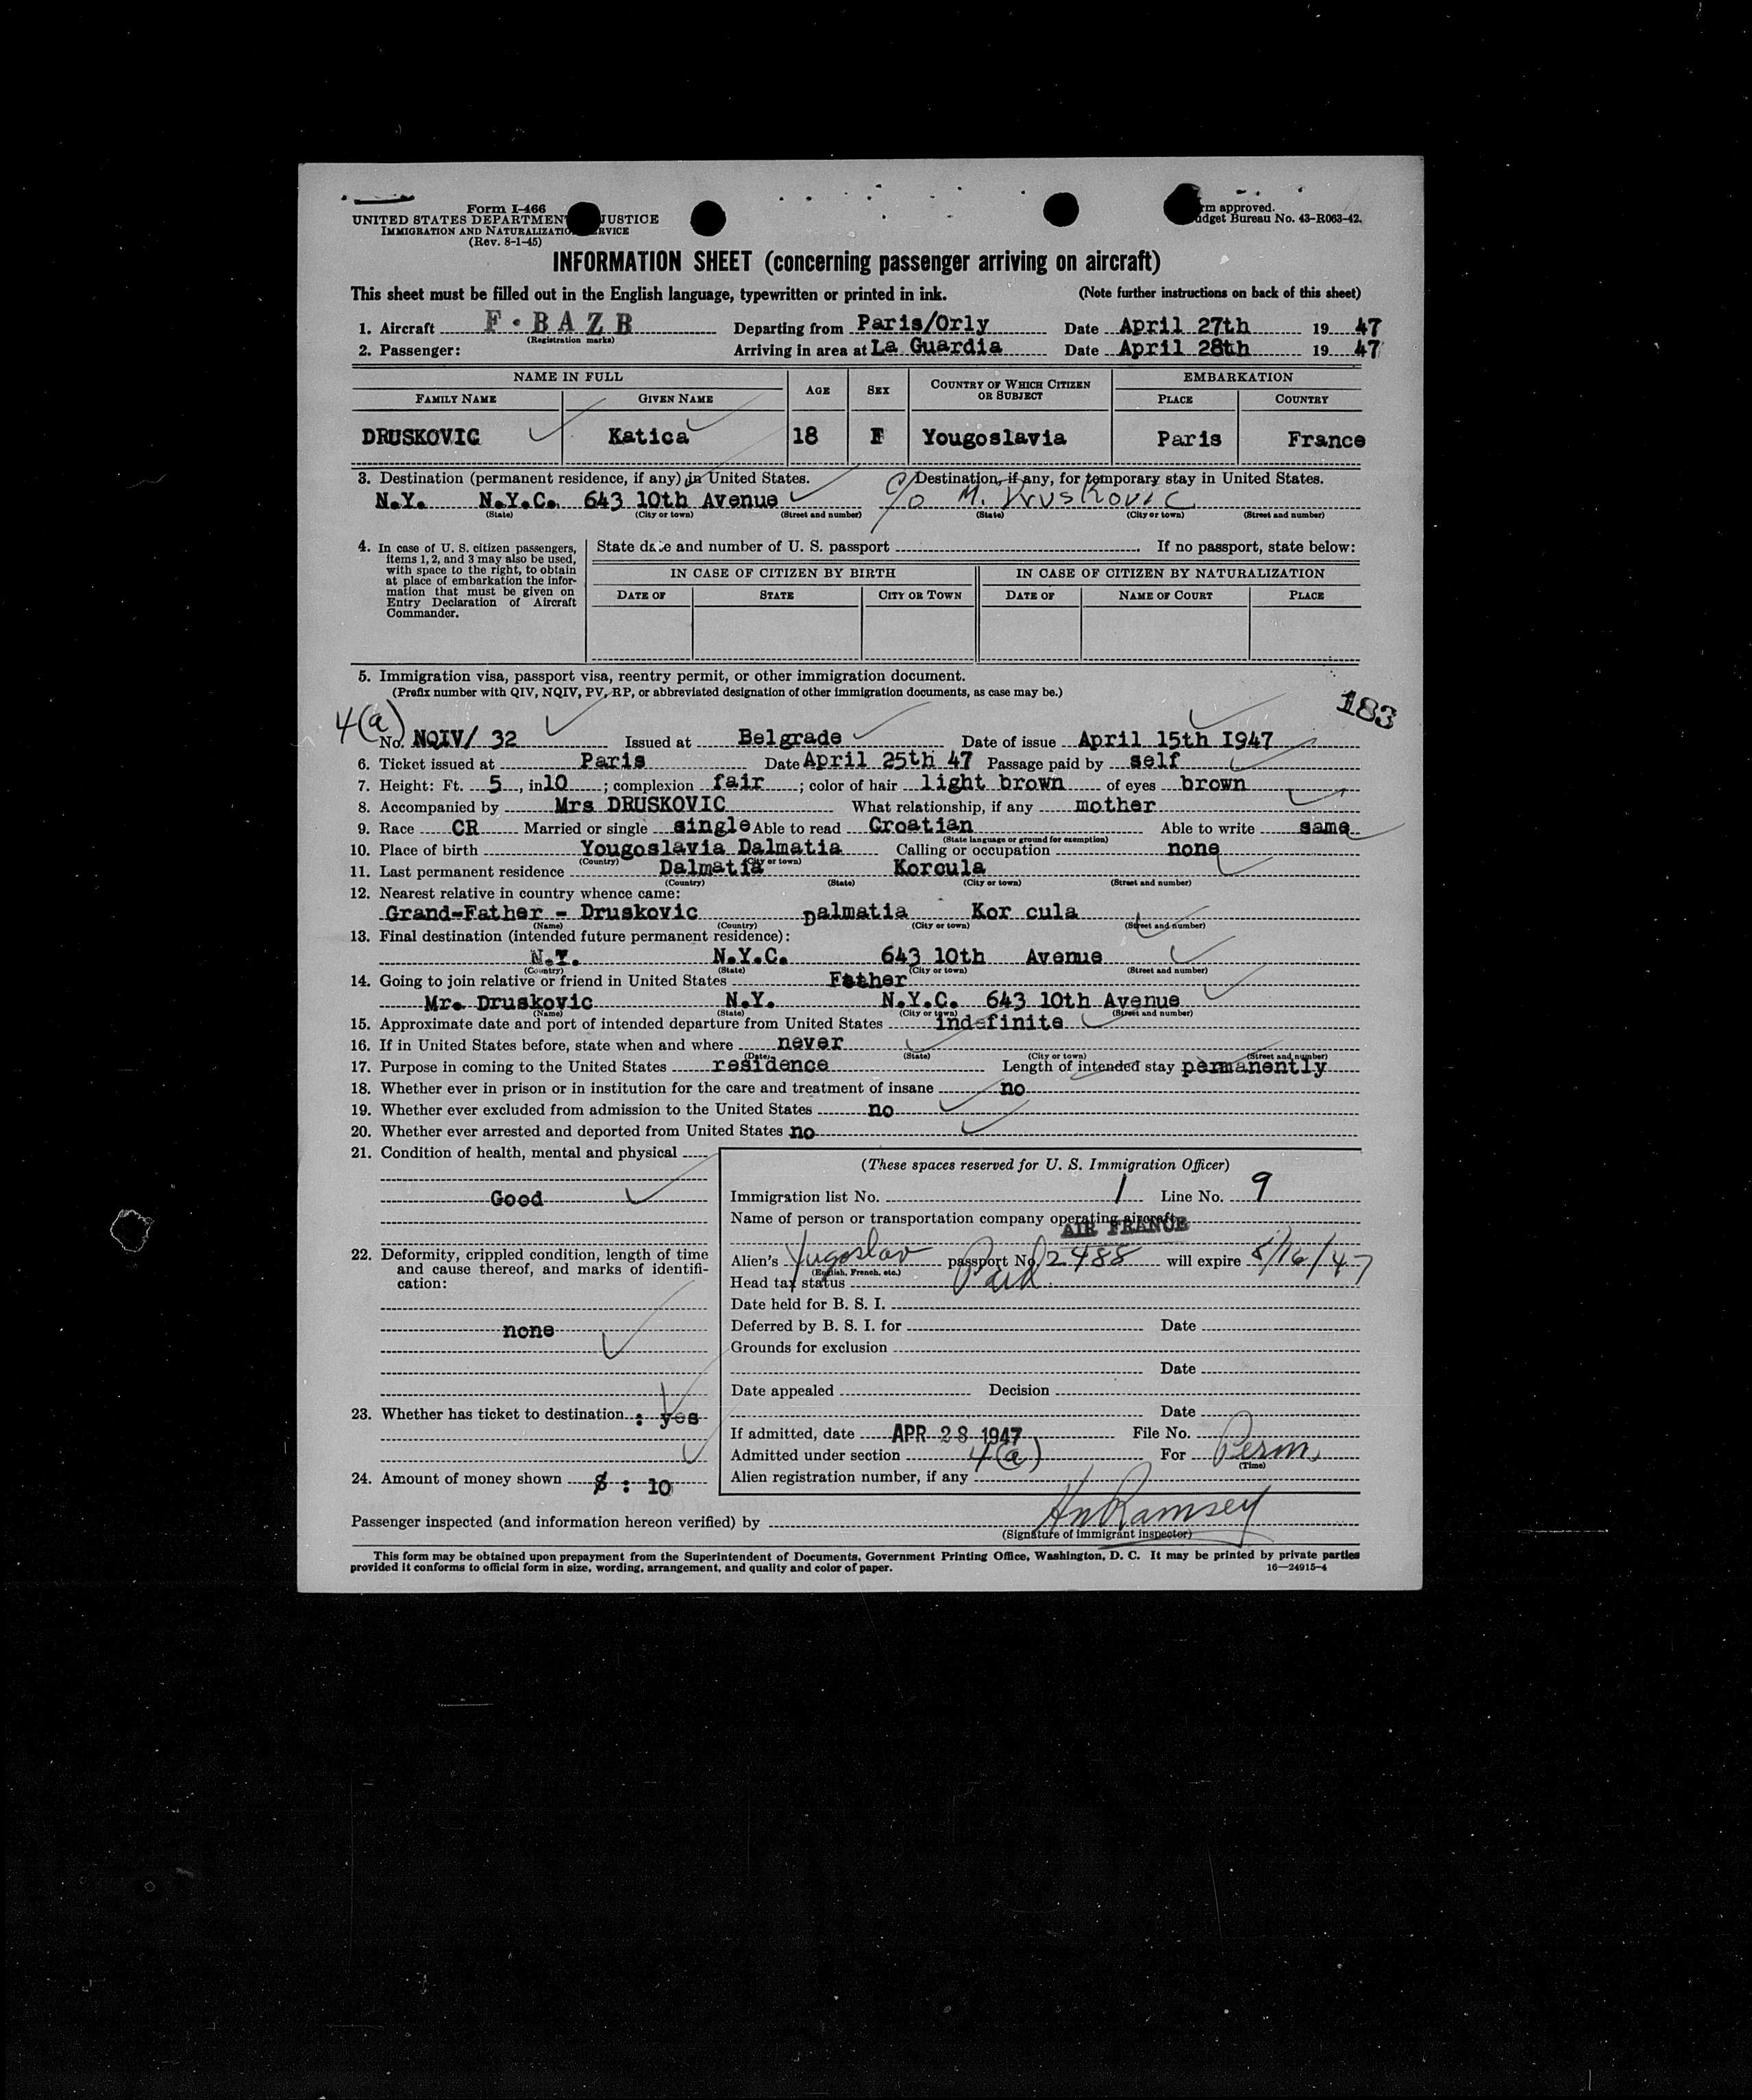 Form I-466
UNITED STATES DEPARTMENT JUSTICE
IMMIGRATION AND NATURALIZATION SERVICE
(Rev. 8-1-45)
Form approved.
Budget Bureau No. 43-R063-42.
INFORMATION SHEET (concerning passenger arriving on aircraft)
This sheet must be filled out in the English language, typewritten or printed in ink. (Note further instructions on back of this sheet)
1. Aircraft F-BAZB Departing from Paris/Orly Date April 27th 19 47
(Registration marks)
2. Passenger: Arriving in area at La Guardia Date April 28th 19 47
NAME IN FULL AGE SEX COUNTRY OF WHICH CITIZEN OR SUBJECT EMBARKATION
FAMILY NAME GIVEN NAME PLACE COUNTRY
DRUSKOVIC Katica 18 F Yougoslavia Paris France
3. Destination (permanent residence, if any) in United States. Destination, if any, for temporary stay in United States.
N.Y. N.Y.C. 643 10th Avenue c/o M. Druskovic
(State) (City or town) (Street and number) (State) (City or town) (Street and number)
4. In case of U. S. citizen passengers, items 1, 2, and 3 may also be used, with space to the right, to obtain at place of embarkation the information that must be given on Entry Declaration of Aircraft Commander.
State date and number of U. S. passport If no passport, state below:
IN CASE OF CITIZEN BY BIRTH IN CASE OF CITIZEN BY NATURALIZATION
DATE OF STATE CITY OR TOWN DATE OF NAME OF COURT PLACE
5. Immigration visa, passport visa, reentry permit, or other immigration document.
(Prefix number with QIV, NQIV, PV, RP, or abbreviated designation of other immigration documents, as case may be.)
183
4(a)
No. NQIV/ 32 Issued at Belgrade Date of issue April 15th I947
6. Ticket issued at Paris Date April 25th 47 Passage paid by self
7. Height: Ft. 5, in 10; complexion fair; color of hair light brown of eyes brown
8. Accompanied by Mrs DRUSKOVIC What relationship, if any mother
9. Race CR Married or single single Able to read Croatian Able to write same
(State language or ground for exemption)
10. Place of birth Yougoslavia Dalmatia Calling or occupation none
(Country) (City or town)
11. Last permanent residence Dalmatia Korcula
(Country) (State) (City or town) (Street and number)
12. Nearest relative in country whence came:
Grand-Father - Druskovic Dalmatia Kor cula
(Name) (Country) (City or town) (Street and number)
13. Final destination (intended future permanent residence):
N.Y. N.Y.C. 643 10th Avenue
(Country) (State) (City or town) (Street and number)
14. Going to join relative or friend in United States Father
Mr. Druskovic N.Y. N.Y.C. 643 10th Avenue
(Name) (State) (City or town) (Street and number)
15. Approximate date and port of intended departure from United States indefinite
16. If in United States before, state when and where never
(Date) (State) (City or town) (Street and number)
17. Purpose in coming to the United States residence Length of intended stay permanently
18. Whether ever in prison or in institution for the care and treatment of insane no
19. Whether ever excluded from admission to the United States no
20. Whether ever arrested and deported from United States no
21. Condition of health, mental and physical
Good
22. Deformity, crippled condition, length of time and cause thereof, and marks of identification:
none
23. Whether has ticket to destination : yes
24. Amount of money shown $ : 10
(These spaces reserved for U. S. Immigration Officer)
Immigration list No. 1 Line No. 9
Name of person or transportation company operating aircraft
AIR FRANCE
Alien's Yugoslav passport No. 2488 will expire 5/16/47
(English, French, etc.)
Head tax status Paid
Date held for B. S. I.
Deferred by B. S. I. for Date
Grounds for exclusion
Date
Date appealed Decision
Date
If admitted, date APR 28 1947 File No.
Admitted under section 4(a) For Perm.
(Time)
Alien registration number, if any
Passenger inspected (and information hereon verified) by HM Ramsey
(Signature of immigrant inspector)
This form may be obtained upon prepayment from the Superintendent of Documents, Government Printing Office, Washington, D. C. It may be printed by private parties
provided it conforms to official form in size, wording, arrangement, and quality and color of paper. 16—24915-4